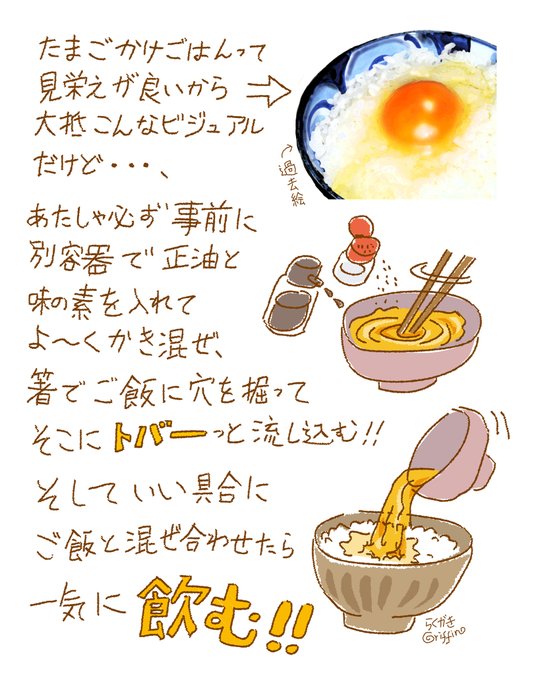 たまごかけごはんって
見栄えが良いから
大抵こんなビジュアル
だけど・・・、
→過去絵
あたしゃ必ず事前に
別容器で正油と
味の素を入れて
よ〜くかき混ぜ、
箸でご飯に穴を掘って
そこにドバーっと流し込む!!
そしていい具合に
ご飯と混ぜ合わせたら
一気に飲む!!
らくがき
©riffino